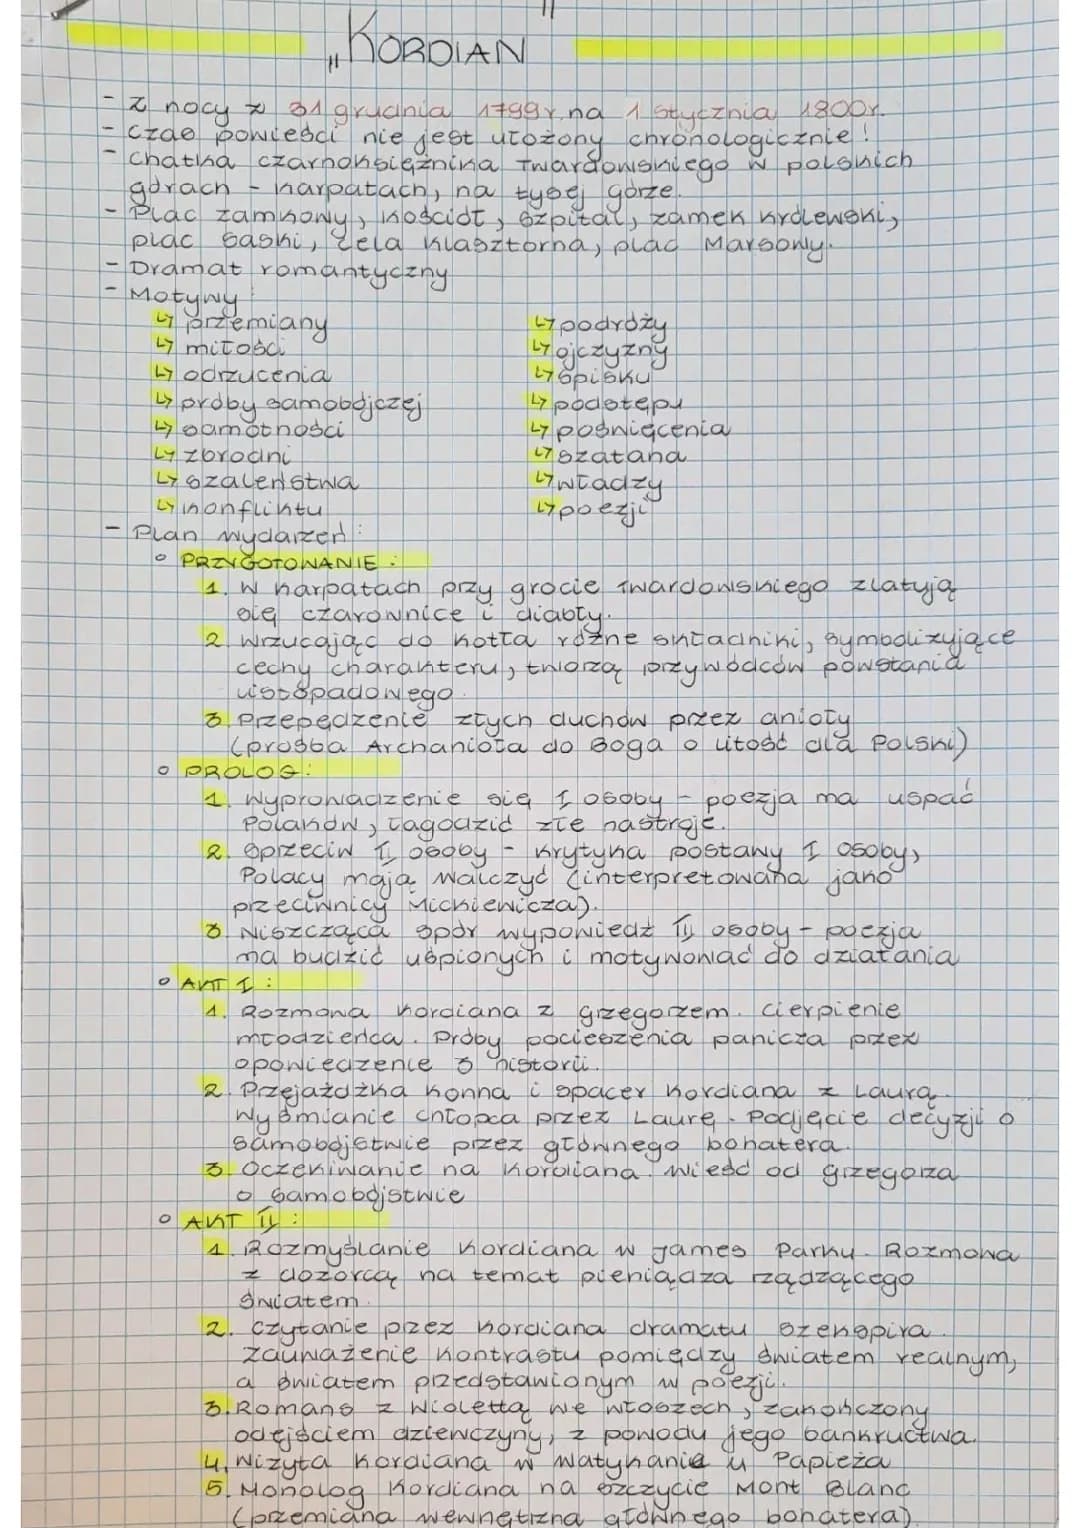 „KORDIAN"
- Z nocy z 31 grudnia 1799r. na 1 stycznia 1800r.
- Czas powieści nie jest ułożony chronologicznie!
- Chatka czarnoksiężnika Twardowskiego w polskich
górach - Karpatach, na łysej górze.
- Plac zamkowy, kościół, szpital, zamek królewski,
plac saski, cela klasztorna, plac Marsowy.
- Dramat romantyczny
- Motywy:
↳ przemiany
↳ miłości
↳ odrzucenia
↳ próby samobójczej
↳ samotności
↳ zbrodni
↳ szaleństwa
↳ konfliktu
↳ podróży
↳ ojczyzny
↳ spisku
↳ podstępu
↳ poświęcenia
↳ szatana
↳ władzy
↳ poezji
- Plan wydarzeń:
o PRZYGOTOWANIE:
1. W Karpatach przy grocie Twardowskiego zlatują
się czarownice i diabły.
2. Wrzucając do kotła różne składniki, symbolizujące
cechy charakteru, tworzą przywódców powstania
listopadowego.
3. Przepędzenie złych duchów przez anioły
(prośba Archanioła do Boga o litość dla Polski)
o PROLOG:
1. Wyprowadzenie się I osoby - poezja ma uspać
Polaków, łagodzić złe nastroje.
2. Sprzeciw II osoby - krytyka postawy I osoby,
Polacy mają walczyć (interpretowana jako
przeciwnicy Mickiewicza).
3. Niszcząca spór wypowiedź III osoby - poezja
ma budzić uśpionych i motywować do działania
o AKT I:
1. Rozmowa Kordiana z Grzegorzem. Cierpienie
młodzieńca. Próby pocieszenia panicza przez
opowiedzenie 3 historii.
2. Przejażdżka konna i spacer Kordiana z Laurą.
Wyśmianie chłopca przez Laurę. Podjęcie decyzji o
samobójstwie przez głównego bohatera.
3. Oczekiwanie na Kordiana. Wieść od Grzegorza
o samobójstwie
o AKT II:
1. Rozmyślanie Kordiana w James Parku. Rozmowa
z dozorcą na temat pieniądza rządzącego
światem.
2. Czytanie przez Kordiana dramatu Szekspira.
Zauważenie kontrastu pomiędzy światem realnym,
a światem przedstawionym w poezji.
3. Romans z Wiolettą we Włoszech, zakończony
odejściem dziewczyny, z powodu jego bankructwa.
4. Wizyta Kordiana w Watykanie u Papieża
5. Monolog Kordiana na szczycie Mont Blanc
(przemiana wewnętrzna głównego bohatera).